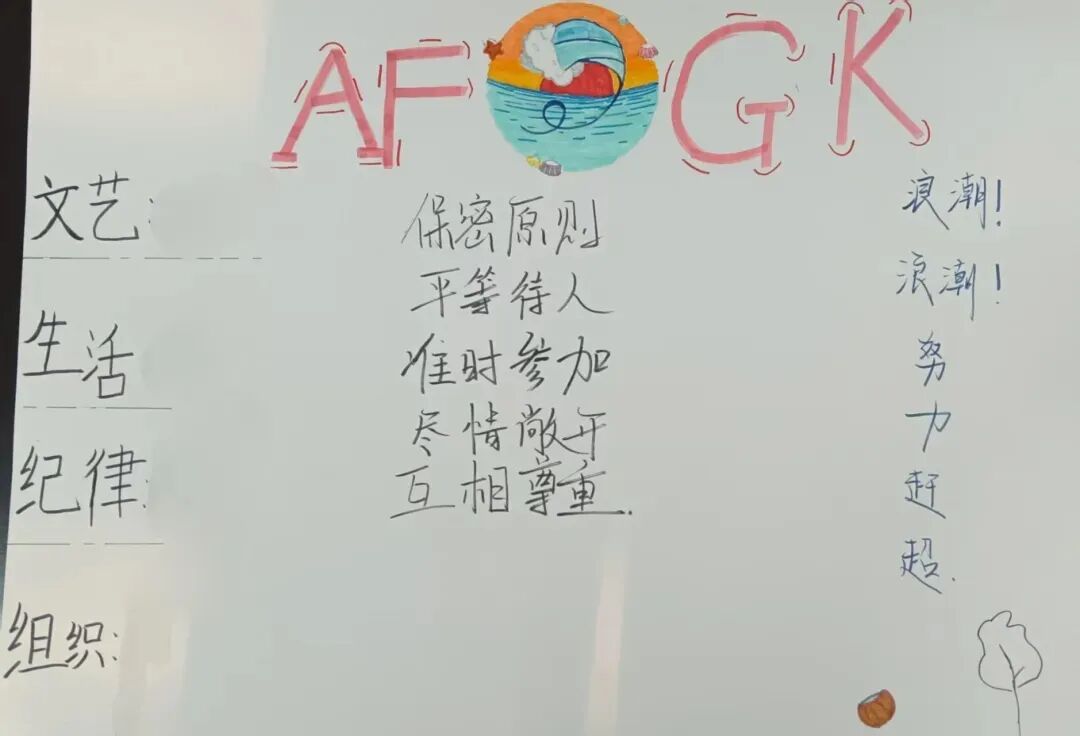 AF GK
文艺:
生活
纪律:
组织:
保密原则
平等待人
准时参加
尽情敞开
互相尊重.
浪潮!
浪潮!
努
力
赶
超.